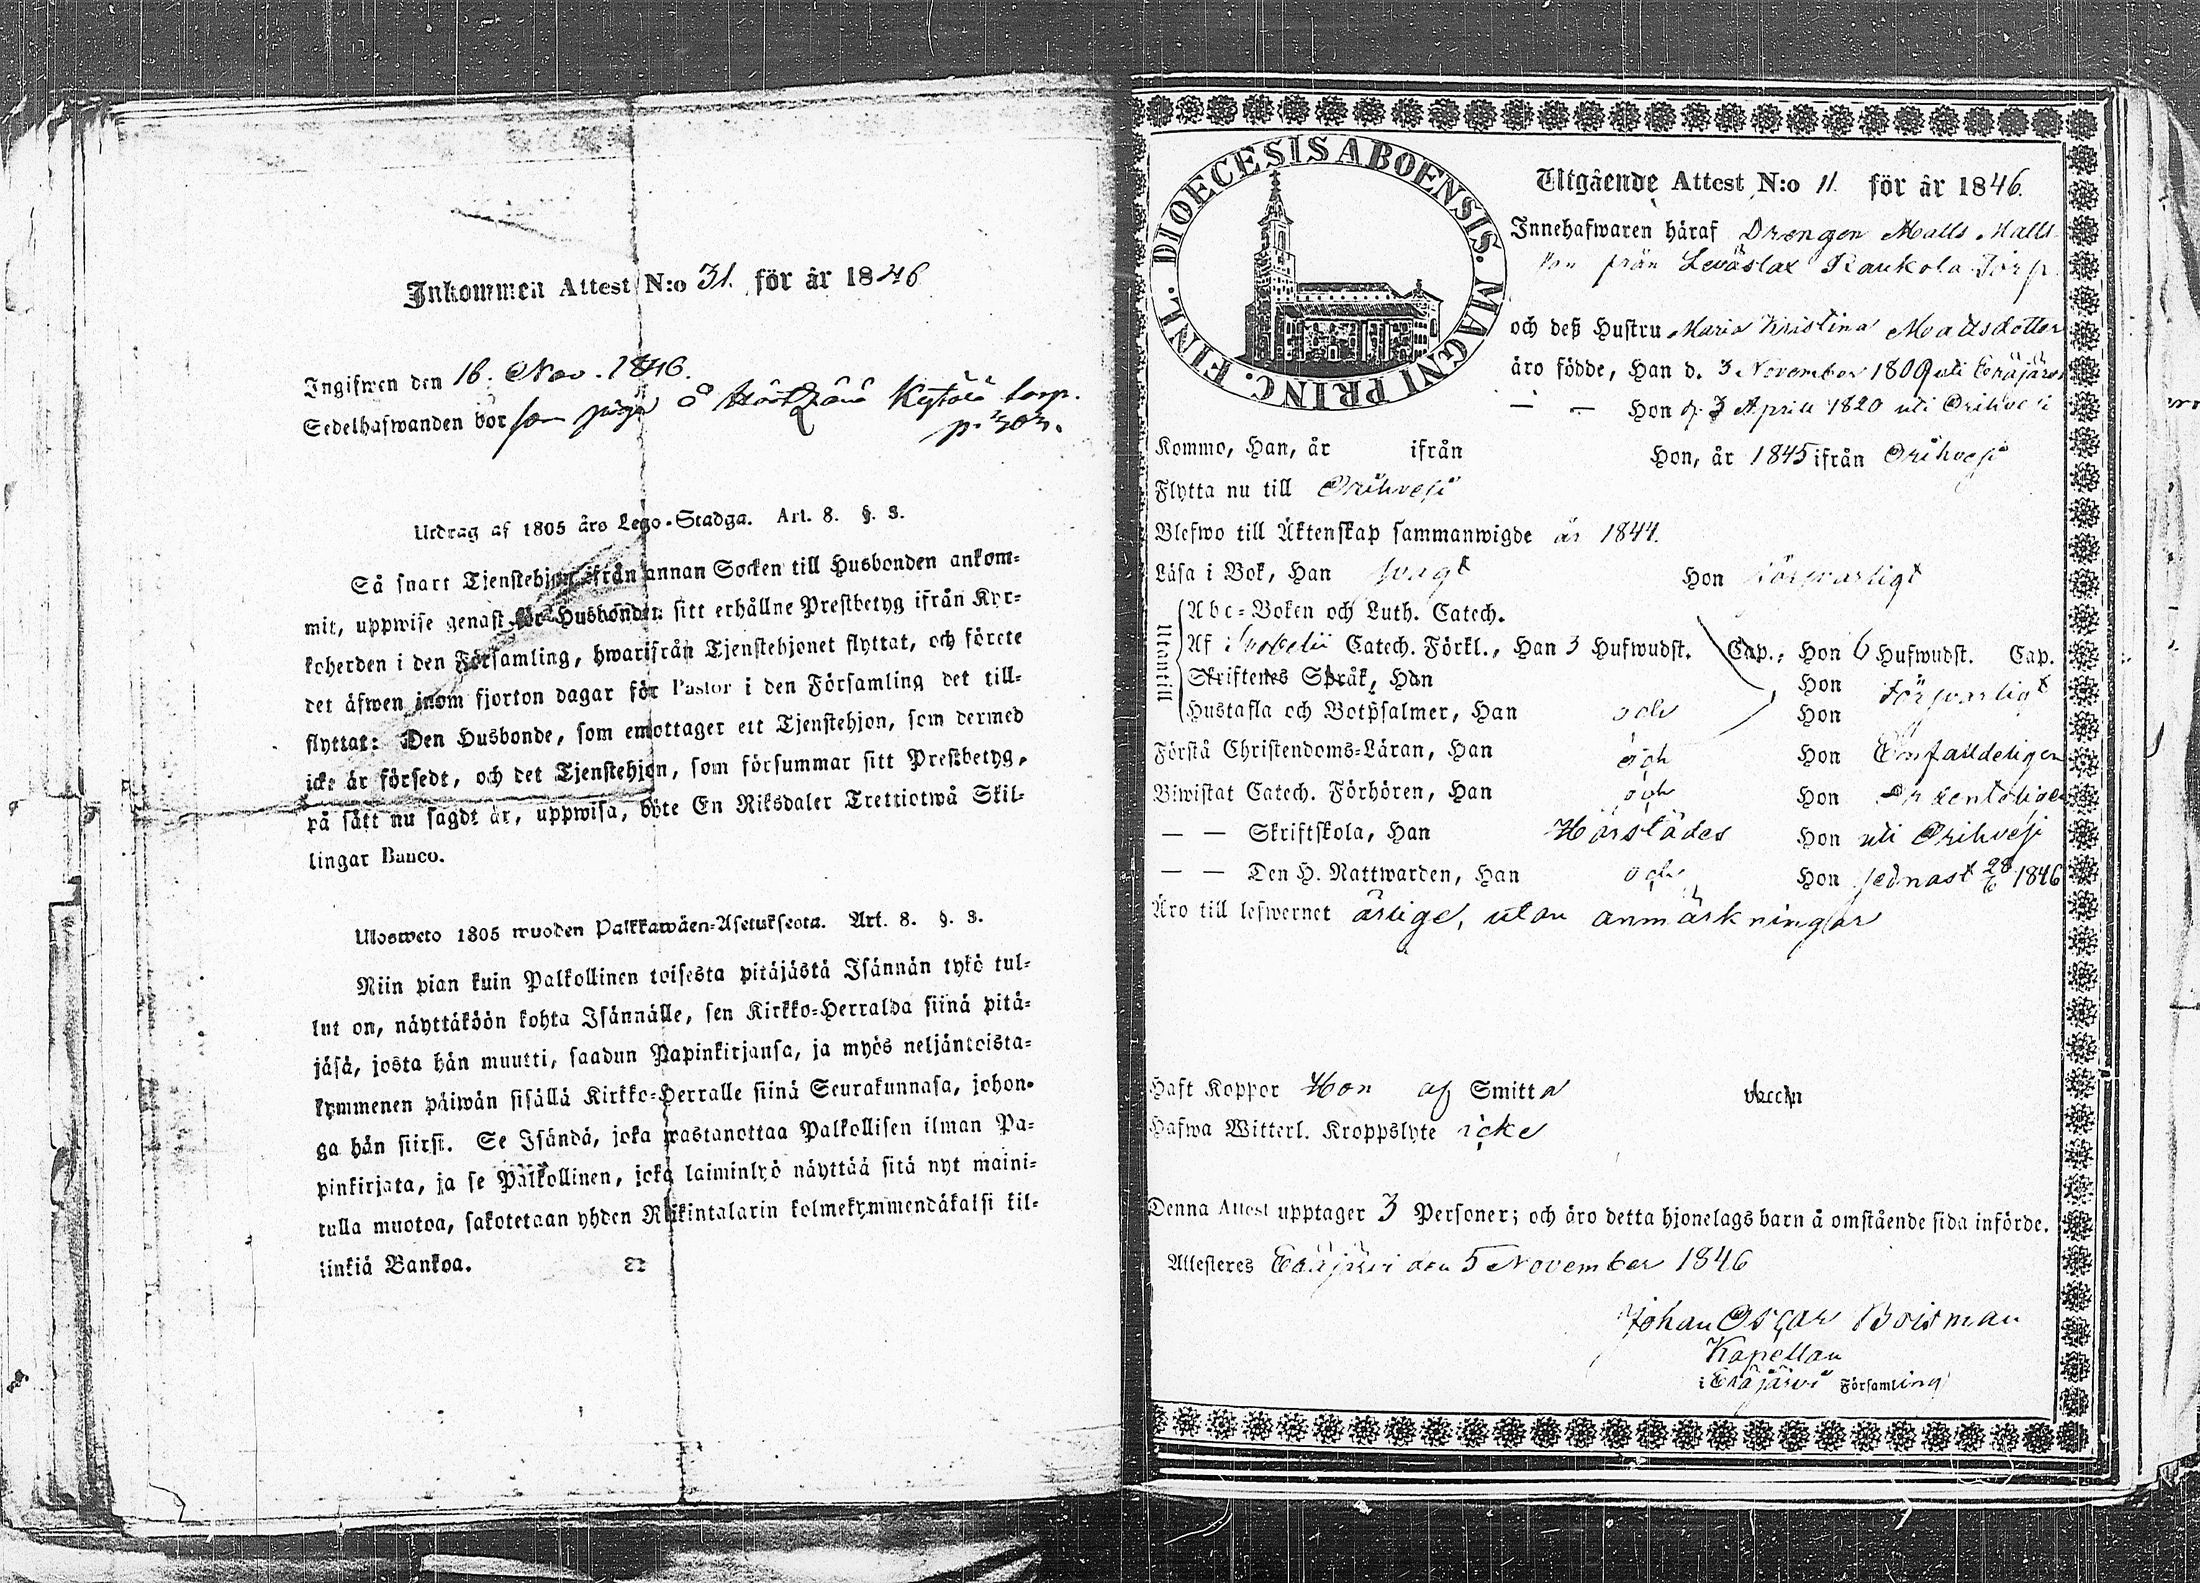 Inkommen Attest N:o 31. för år 1846
Ingifwen den 16. Nov. 1846.
Sedelhafwanden bor som piga å Kytölä torp.
p. 303.
Utdrag af 1805 års Lego-Stadga. Art. 8. §. 3.
Så snart Tjenstehjon ifrån annan Socken till Husbonden ankom-
mit, uppwise genast för Husbonden sitt erhållne Prestbetyg ifrån Kyr-
koherden i den Församling, hwarifrån Tjenstehjonet flyttat, och förete
det äfwen inom fjorton dagar för Pastor i den Församling det till-
flyttat: Den Husbonde, som emottager ett Tjenstehjon, som dermed
icke är försedt, och det Tjenstehjon, som försummar sitt Prestbetyg,
på sätt nu sagdt är, uppwisa, böte En Riksdaler Trettiotwå Skil-
lingar Banco.
Ulosweto 1805 wuoden Palkkawäen-Asetuksesta. Art. 8. §. 3.
Niin pian kuin Palkollinen toisesta pitäjästä Isännän tykö tul-
lut on, näyttäköön kohta Isännälle, sen Kirkko-Herralda siinä pitä-
jäsä, josta hän muutti, saadun Papinkirjansa, ja myös neljäntoista-
kymmenen päiwän sisällä Kirkko-Herralle siinä Seurakunnasa, johon-
ga hän siirsi. Se Isändä, joka wastanottaa Palkollisen ilman Pa-
pinkirjata, ja se Palkollinen, joka laiminlyö näyttää sitä nyt maini-
tulla muotoa, sakotetaan yhden Riikintalarin kolmekymmendäkaksi kil-
linkiä Bankoa.
DIOECESIS ABOENSIS. MAGNI PRINC. FINL.
Utgående Attest N:o 11. för år 1846.
Innehafwaren häraf Drengen Matts Matts
son från Leväslax Raukola Torp
och deß Hustru Maria Kristina Mattsdotter
äro födde, Han d. 3 November 1809 uti Eräjärvi
— — Hon d. 3 Aprill 1820 uti Orihvesi
Kommo, Han, år ifrån Hon, år 1845 ifrån Orihvesi
Flytta nu till Orihvesi
Blefwo till Äktenskap sammanwigde år 1844.
Läsa i Bok, Han svagt Hon försvarligt
Utantill
Abc-Boken och Luth. Catech.
Af Svebelii Catech. Förkl., Han 3 Hufwudst. Cap., Hon 6 Hufwudst. Cap.
Skriftenes Språk, Han Hon försvarligt
Hustafla och Botpsalmer, Han och Hon
Förstå Christendoms-Läran, Han och Hon Enfalldeligen
Biwistat Catech. Förhören, Han och Hon ordenteligen
— — Skriftskola, Han Härstädes Hon uti Orihvesi
— — Den H. Nattwarden, Han och Hon sednast 28/6 1846
Äro till lefwernet ärlige, utan anmärkningar
Haft Koppor Hon af Smitta vaccin
Hafwa Witterl. Kroppslyte icke
Denna Attest upptager 3 Personer; och äro detta hjonelags barn å omstående sida införde.
Attesteres Eräjärvi den 5 November 1846
Johan Oscar Boisman
Kapellan
i Eräjärvi Församling